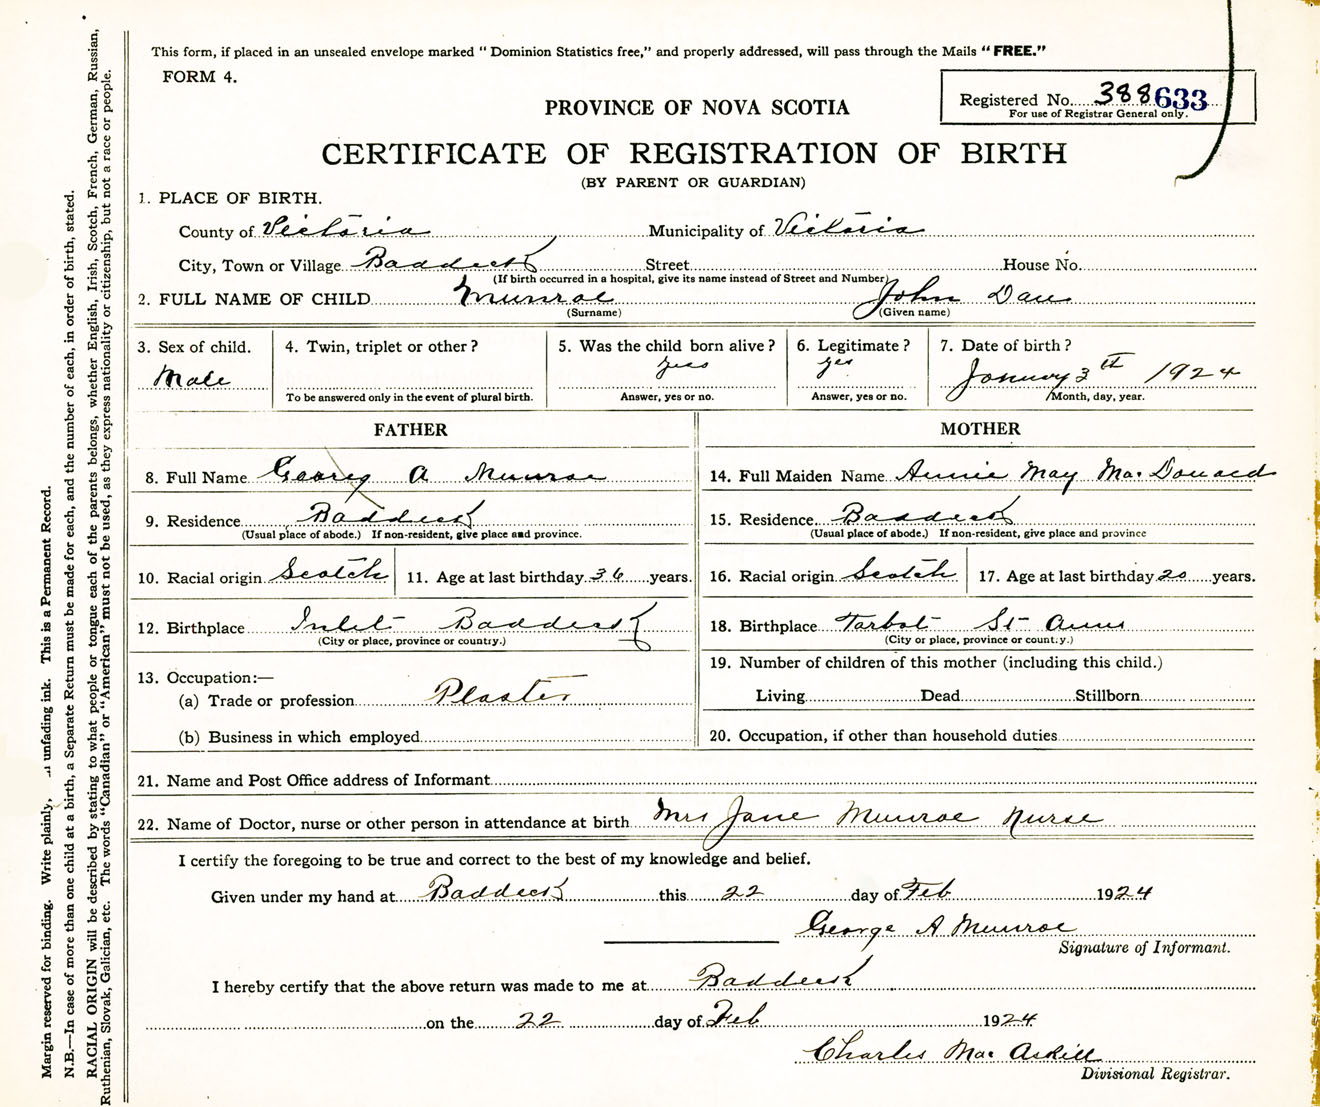 This form, if placed in an unsealed envelope marked "Dominion Statistics free," and properly addressed, will pass through the Mails "FREE."
FORM 4.
Registered No. 388633
For use of Registrar General only.
PROVINCE OF NOVA SCOTIA
CERTIFICATE OF REGISTRATION OF BIRTH
(BY PARENT OR GUARDIAN)
1. PLACE OF BIRTH.
County of Victoria Municipality of Victoria
City, Town or Village Baddeck Street House No.
(If birth occurred in a hospital, give its name instead of Street and Number)
2. FULL NAME OF CHILD Munroe John Dan
(Surname) (Given name)
3. Sex of child. 4. Twin, triplet or other? 5. Was the child born alive? 6. Legitimate? 7. Date of birth?
Male yes yes January 3th 1924
To be answered only in the event of plural birth. Answer, yes or no. Answer, yes or no. Month, day, year.
FATHER MOTHER
8. Full Name Georg A Munroe 14. Full Maiden Name Annie May Mac Donald
9. Residence Baddeck 15. Residence. Baddeck
(Usual place of abode.) If non-resident, give place and province. (Usual place of abode.) If non-resident, give place and province
10. Racial origin Scotch 11. Age at last birthday 36 years. 16. Racial origin Scotch 17. Age at last birthday 20 years.
12. Birthplace Inlet Baddeck 18. Birthplace Tarbot St Anns
(City or place, province or country.) (City or place, province or country.)
19. Number of children of this mother (including this child.)
13. Occupation:—
(a) Trade or profession Plaster Living Dead Stillborn
(b) Business in which employed 20. Occupation, if other than household duties
21. Name and Post Office address of Informant
22. Name of Doctor, nurse or other person in attendance at birth Mrs Jane Munroe Nurse
I certify the foregoing to be true and correct to the best of my knowledge and belief.
Given under my hand at Baddeck this 22 day of Feb 1924
George A Munroe
Signature of Informant.
I hereby certify that the above return was made to me at Baddeck
on the 22 day of Feb 1924
Charles Mac Askill
Divisional Registrar.
Margin reserved for binding. Write plainly, unfading ink. This is a Permanent Record.
N.B.—In case of more than one child at a birth, a Separate Return must be made for each, and the number of each, in order of birth, stated.
RACIAL ORIGIN will be described by stating to what people or tongue each of the parents belongs, whether English, Irish, Scotch, French, German, Russian,
Ruthenian, Slovak, Galician, etc. The words "Canadian" or "American" must not be used, as they express nationality or citizenship, but not a race or people.